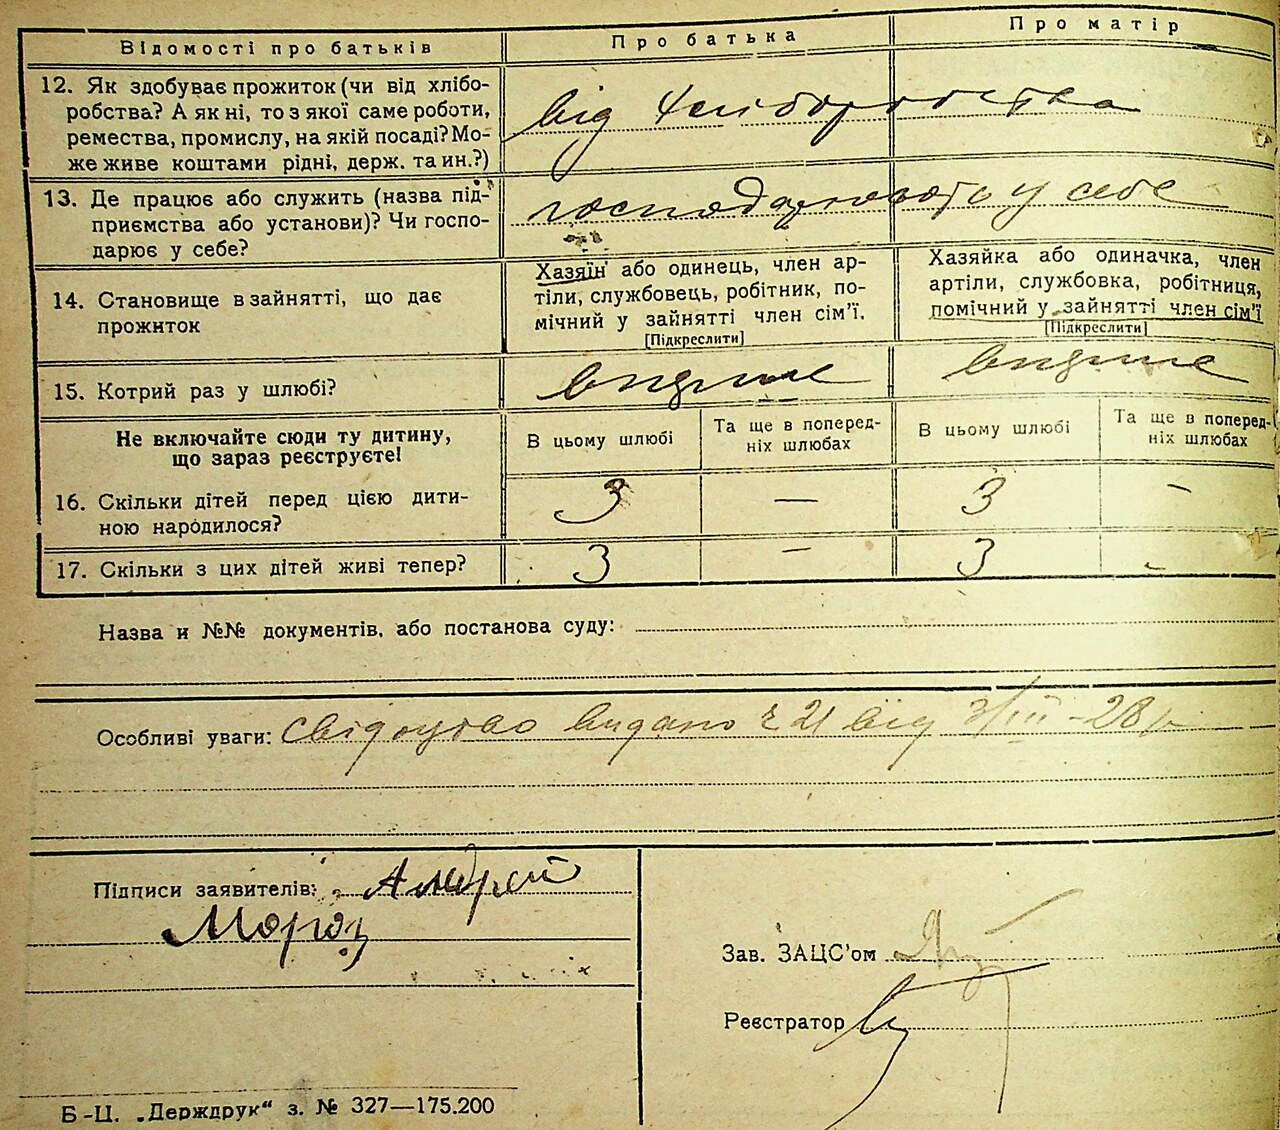 Відомості про батьків
Про батька
Про матір
12. Як здобуває прожиток (чи від хлібо-
робства? А як ні, то з якої саме роботи,
ремества, промислу, на якій посаді? Мо-
же живе коштами рідні, держ. та ин.?)
від хліборобства
13. Де працює або служить (назва під-
приємства або установи)? Чи госпо-
дарює у себе?
господарюють у себе
14. Становище в зайнятті, що дає
прожиток
Хазяїн або одинець, член ар-
тіли, службовець, робітник, по-
мічний у зайнятті член сім'ї.
[Підкреслити]
Хазяйка або одиначка, член
артіли, службовка, робітниця,
помічний у зайнятті член сім'ї
[Підкреслити]
15. Котрий раз у шлюбі?
вперше
вперше
Не включайте сюди ту дитину,
що зараз реєструєте!
В цьому шлюбі
Та ще в поперед-
ніх шлюбах
В цьому шлюбі
Та ще в поперед-
ніх шлюбах
16. Скільки дітей перед цією дити-
ною народилося?
3 — 3 -
17. Скільки з цих дітей живі тепер?
3 — 3 -
Назва и №№ документів, або постанова суду:
Особливі уваги: свідоцтво видано 21 від 3/III-28 р
Підписи заявителів: Андрей
Мороз
Зав. ЗАЦС'ом
Реєстратор
Б-Ц. „Держдрук" з. № 327—175.200